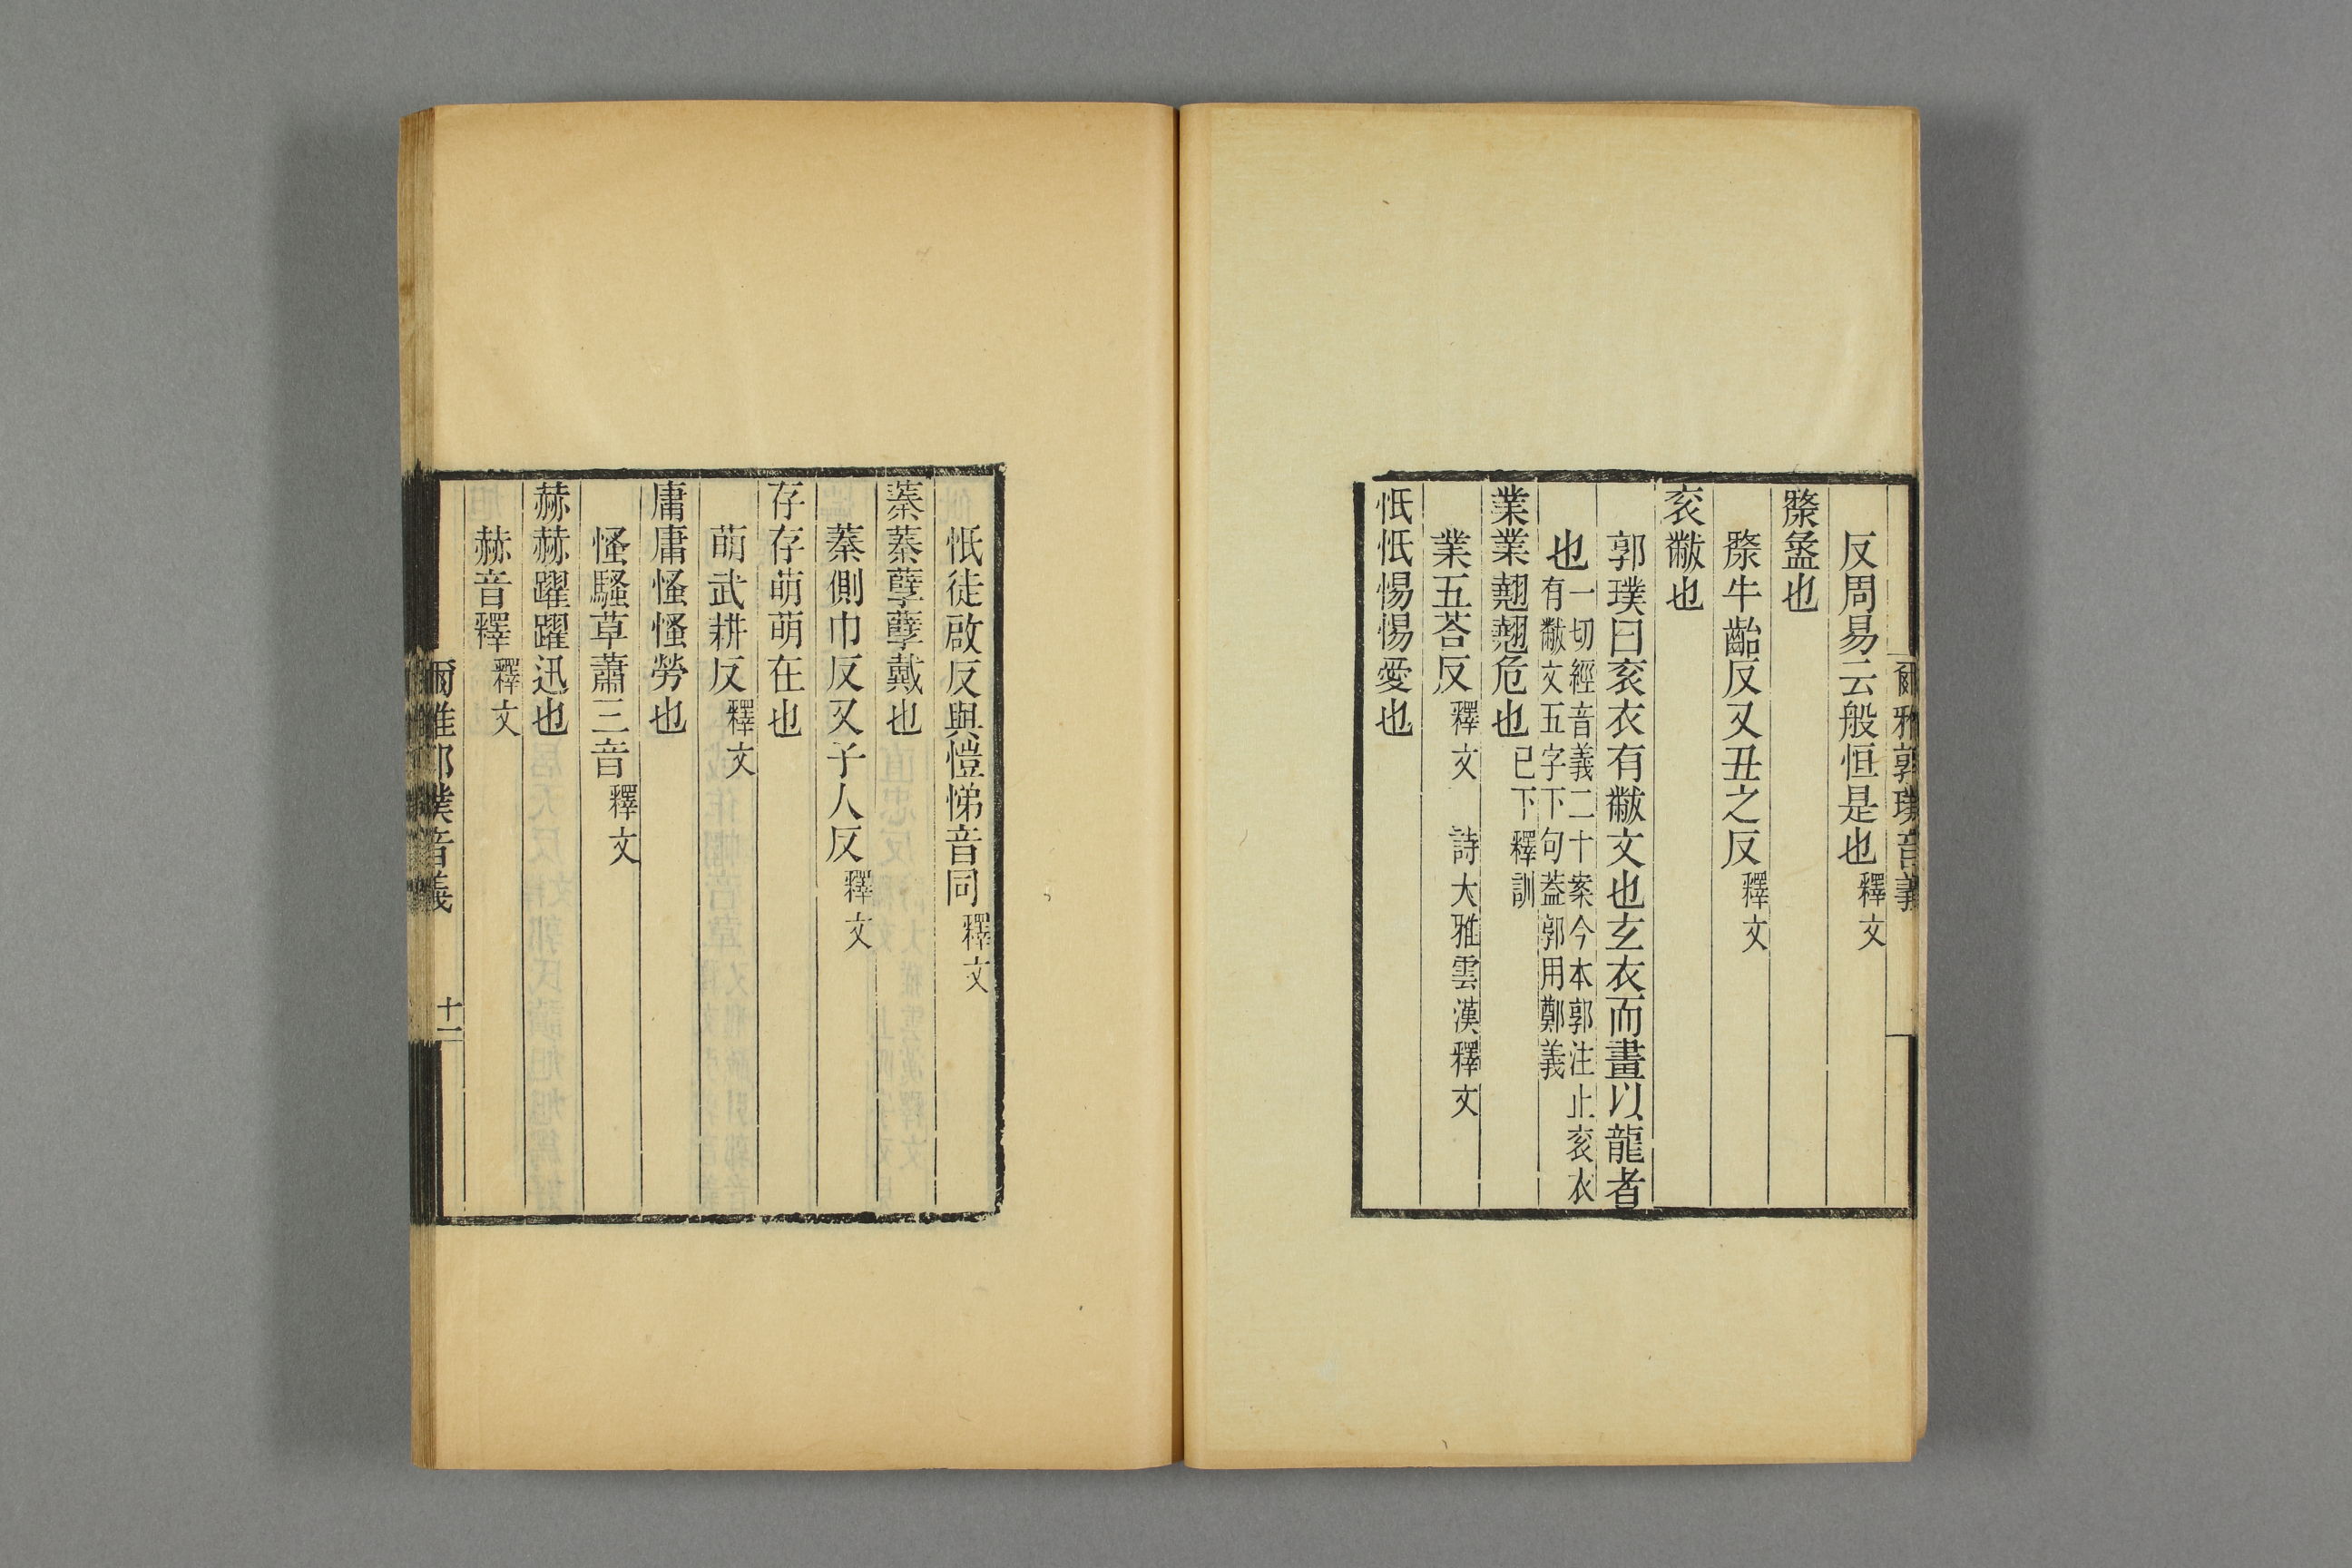 爾雅郭璞音義
反周易云般恒是也釋文
漦盝也
漦牛齝反又丑之反釋文
衮黻也
郭璞曰衮衣有黻文也玄衣而畫以龍者
也一切經音義二十案今本郭注止衮衣
有黻文五字下句葢郭用鄭義
業業翹翹危也已下釋訓
業五荅反釋文 詩大雅雲漢釋文
恀恀惕惕愛也
恀徒啟反與愷悌音同釋文
蓁蓁孽孽戴也
蓁側巾反又子人反釋文
存存萌萌在也
萌武耕反釋文
庸庸慅慅勞也
慅騷草蕭三音釋文
赫赫躍躍迅也
赫音釋釋文
爾雅郭璞音義
十一